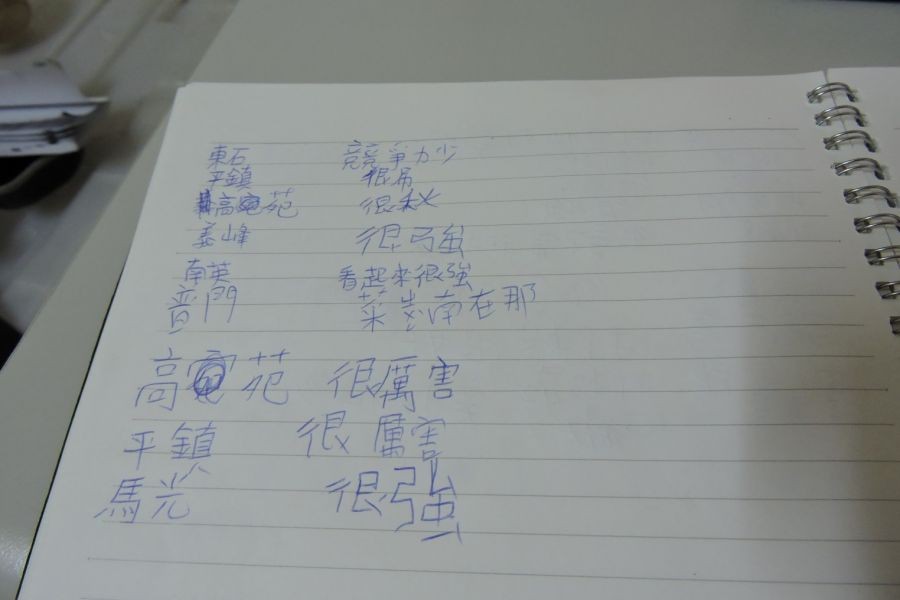 東石 競爭力少
平鎮 很吊
高苑 很秋
峰 很強
南英 看起來很強
門 菜 南在那
高苑 很厲害
平鎮 很厲害
馬光 很強